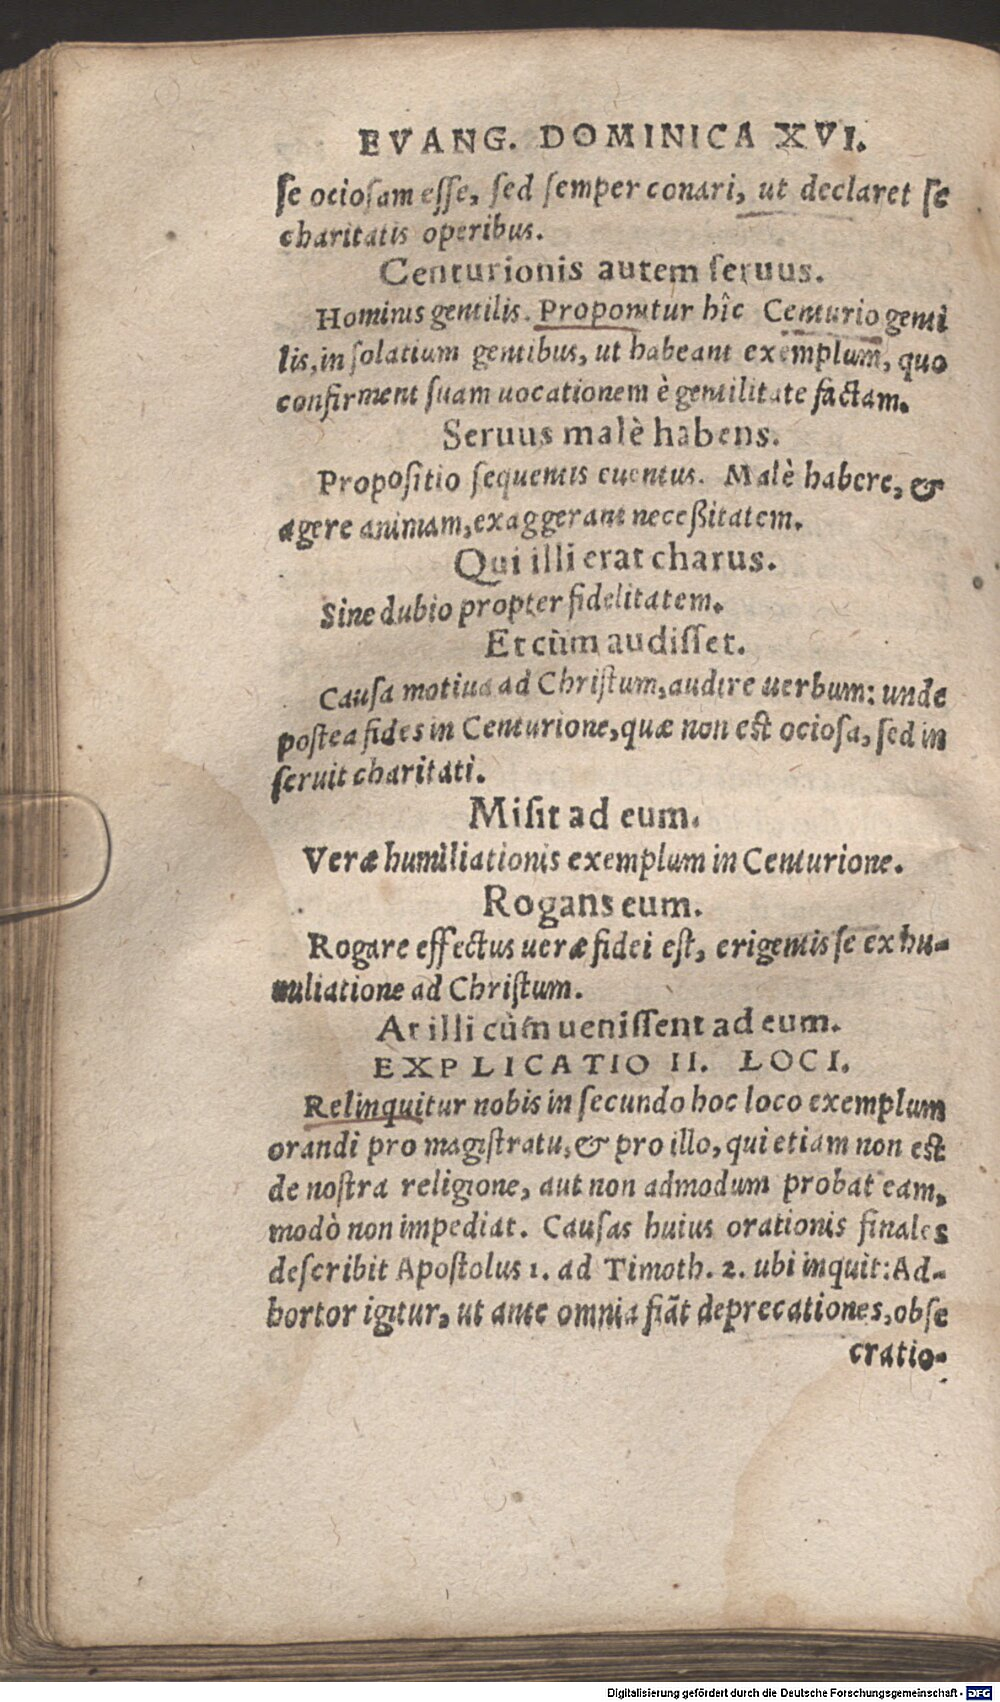 EVANG. DOMINICA XVI.
se ociosam esse, sed semper conari, ut declaret se
charitatis operibus.
Centurionis autem seruus.
Hominis gentilis. Proponitur hîc Centurio genti
lis, in solatium gentibus, ut habeant exemplum, quo
confirment suam uocationem è gentilitate factam.
Seruus malè habens.
Propositio sequentis euentus. Malè habere, &
agere animam, exaggerant neceßitatem.
Qui illi erat charus.
Sine dubio propter fidelitatem.
Et cùm audisset.
Causa motiua ad Christum, audire uerbum: unde
postea fides in Centurione, quæ non est ociosa, sed in
seruit charitati.
Misit ad eum.
Veræ humiliationis exemplum in Centurione.
Rogans eum.
Rogare effectus ueræ fidei est, erigentis se ex hu-
miliatione ad Christum.
At illi cùm uenissent ad eum.
EXPLICATIO II. LOCI.
Relinquitur nobis in secundo hoc loco exemplum
orandi pro magistratu, & pro illo, qui etiam non est
de nostra religione, aut non admodum probat eam,
modò non impediat. Causas huius orationis finales
describit Apostolus 1. ad Timoth. 2. ubi inquit: Ad-
hortor igitur, ut ante omnia fiãt deprecationes, obse
cratio-
Digitalisierung gefördert durch die Deutsche Forschungsgemeinschaft - DFG